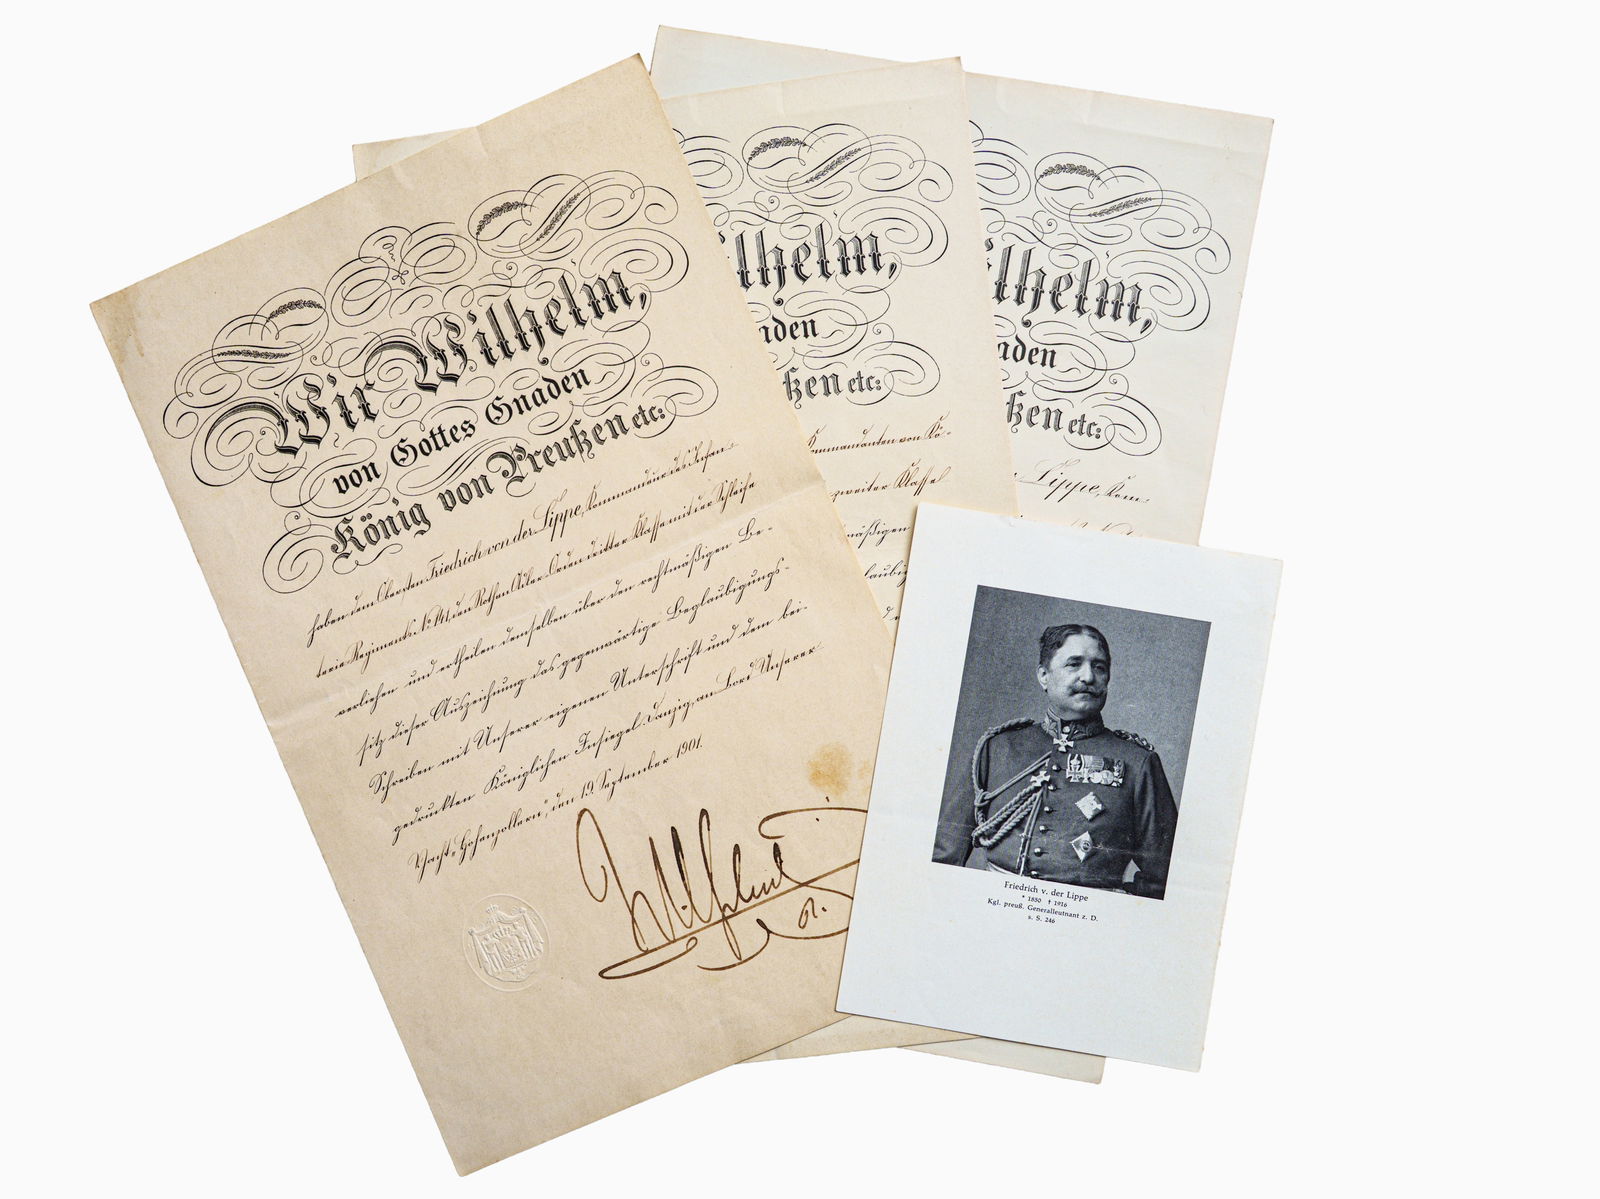 Wir Wilhelm,
von Gottes Gnaden
König von Preußen etc:
haben dem Obersten Friedrich von der Lippe, Kommandeur des Infan-
terie Regiments No 141, den Rothen Adler-Orden dritter Klasse mit der Schleife
verliehen und ertheilen demselben über den rechtmäßigen Be-
sitz dieser Auszeichnung das gegenwärtige Beglaubigungs-
Schreiben mit Unserer eigenen Unterschrift und dem bei-
gedruckten Königlichen Insiegel. Danzig, an Bord Unserer
Yacht „Hohenzollern", den 19. September 1901.
Wilhelm
R.
ilhelm,
aden
ßen etc:
Kommandanten von Kö-
zweiter Klasse
mäßigen
laubig
ilhelm,
aden
ßen etc:
Lippe, Kom-
Friedrich v. der Lippe
* 1850 † 1916
Kgl. preuß. Generalleutnant z. D.
s. S. 246